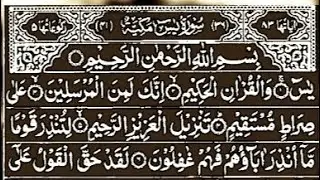 اٰیاتُهَا ۸۳ (۳۶) سُوْرَةُ یٰسٓ مَکِّیَّةٌ (۴۱) رُکُوْعَاتُهَا ۵
بِسْمِ اللّٰهِ الرَّحْمٰنِ الرَّحِیْمِ
یٰسٓ وَالْقُرْاٰنِ الْحَکِیْمِ اِنَّكَ لَمِنَ الْمُرْسَلِیْنَ عَلٰی
صِرَاطٍ مُّسْتَقِیْمٍ تَنْزِیْلَ الْعَزِیْزِ الرَّحِیْمِ لِتُنْذِرَ قَوْمًا
مَّاۤ اُنْذِرَ اٰبَآؤُهُمْ فَهُمْ غٰفِلُوْنَ لَقَدْ حَقَّ الْقَوْلُ عَلٰۤی